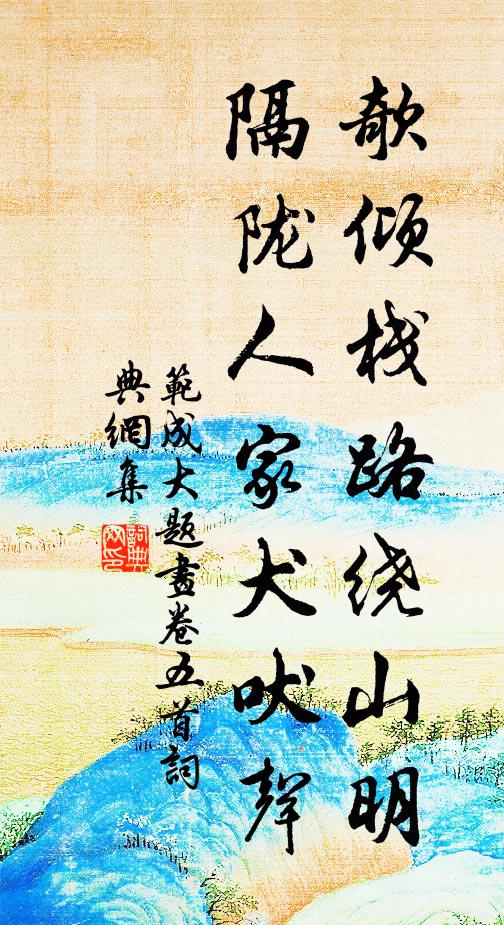 欹倾栈路绕山明
隔陇人家犬吠声
範成大题畫卷五首詞
典網集
詞典網印